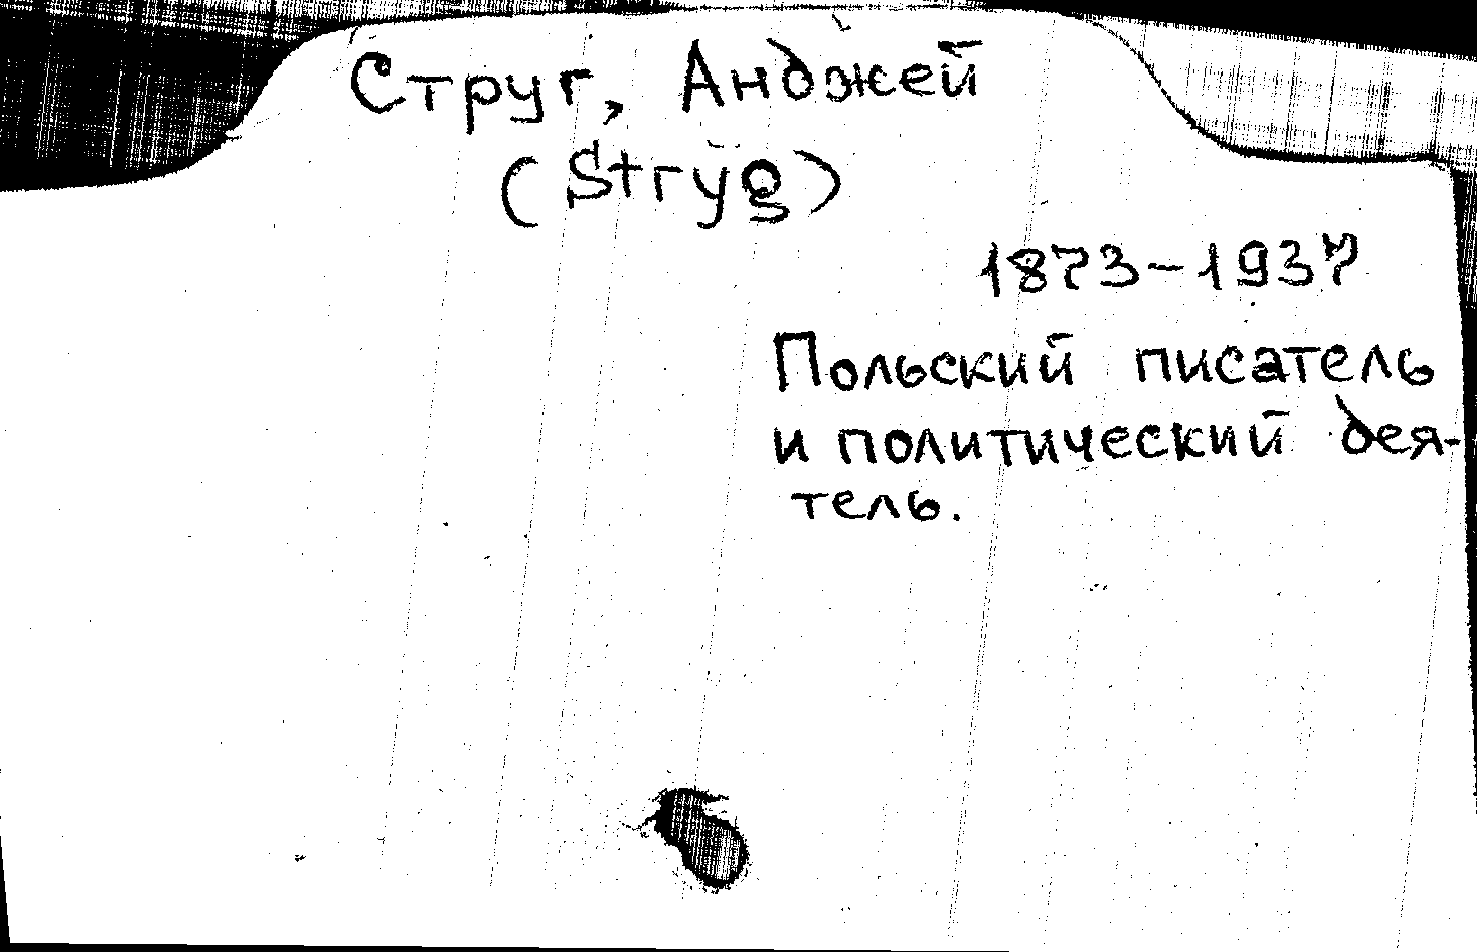 Струг, Анджей
(Stryg)
1873-1937
Польский писатель
и политический дея-
тель.